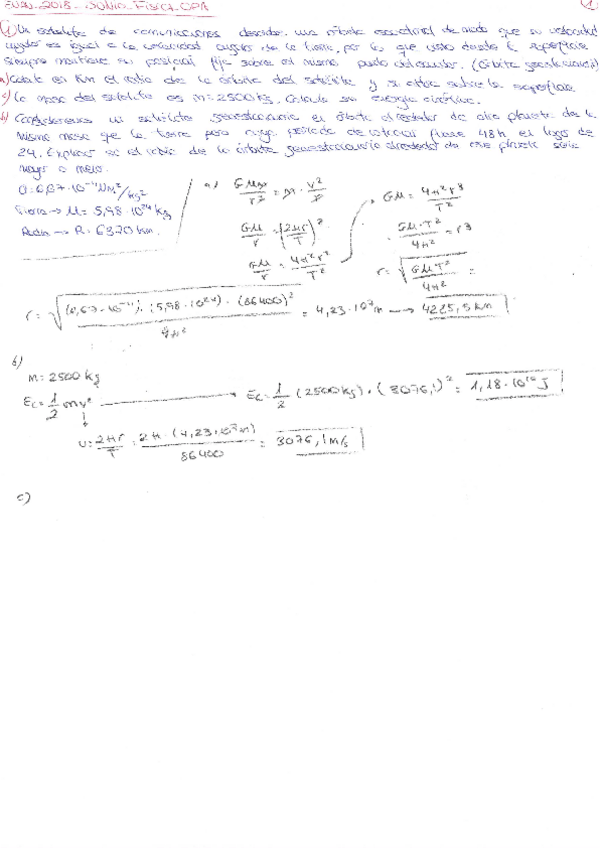 EVAU_2018_Junio_Física_OPA
①
① Un satélite de comunicaciones describe una órbita ecuatorial de modo que su velocidad
angular es igual a la velocidad angular de la tierra, por lo que visto desde la superficie
siempre mantiene su posición fija sobre el mismo punto del ecuador. (órbita geoestacionaria)
a) Calcule en Km el radio de la órbita del satélite y altura sobre la superficie
c) La masa del satélite es m=2500 kg. Calcula su energía cinética.
b) Consideremos un satélite geoestacionario en órbita alrededor de otro planeta de la
misma masa que la tierra pero cuyo periodo de rotación fuese 48h en lugar de
24. Explicar si el radio de la órbita geoestacionaria alrededor de ese planeta sería
mayor o menor.
G=6,67·10⁻¹¹ Nm²/kg²
Tierra → M=5,98·10²⁴ kg
Radio → R=6370 km.
a) GMm/r² = m·v²/r
GM/r = (2πr/T)²
GM/r = 4π²r²/T²
GM = 4π²r³/T²
GM·T²/4π² = r³
r = √GMT²/4π² =
r = √(6,67·10⁻¹¹)·(5,98·10²⁴)·(86400)²/4π² = 4,23·10⁷m → 4225,5 km
b)
m=2500 kg
Ec=1/2 mv² → Ec=1/2 (2500kg)·(3076,1)² = 1,18·10¹⁰ J
v=2πr/T = 2π·(4,23·10⁷m)/86400 = 3076,1 m/s
c)